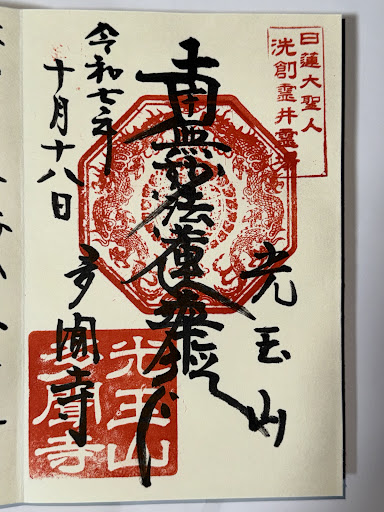 日蓮大聖人
洗創靈井靈場
光玉山
南無妙法蓮華経
令和七年
十月十八日
多聞寺
光玉山
多聞寺